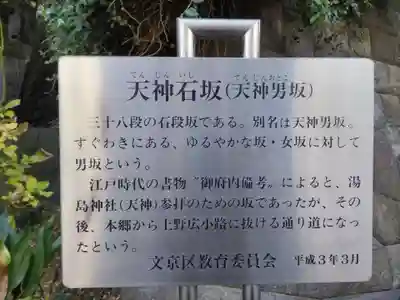 てんじんいし てんじんおとこ
天神石坂(天神男坂)
三十八段の石段坂である。別名は天神男坂。
すぐわきにある、ゆるやかな坂・女坂に対して
男坂という。
江戸時代の書物〝御府内備考〟によると、湯
島神社(天神)参拝のための坂であったが、その
後、本郷から上野広小路に抜ける通り道になっ
たという。
文京区教育委員会 平成3年3月